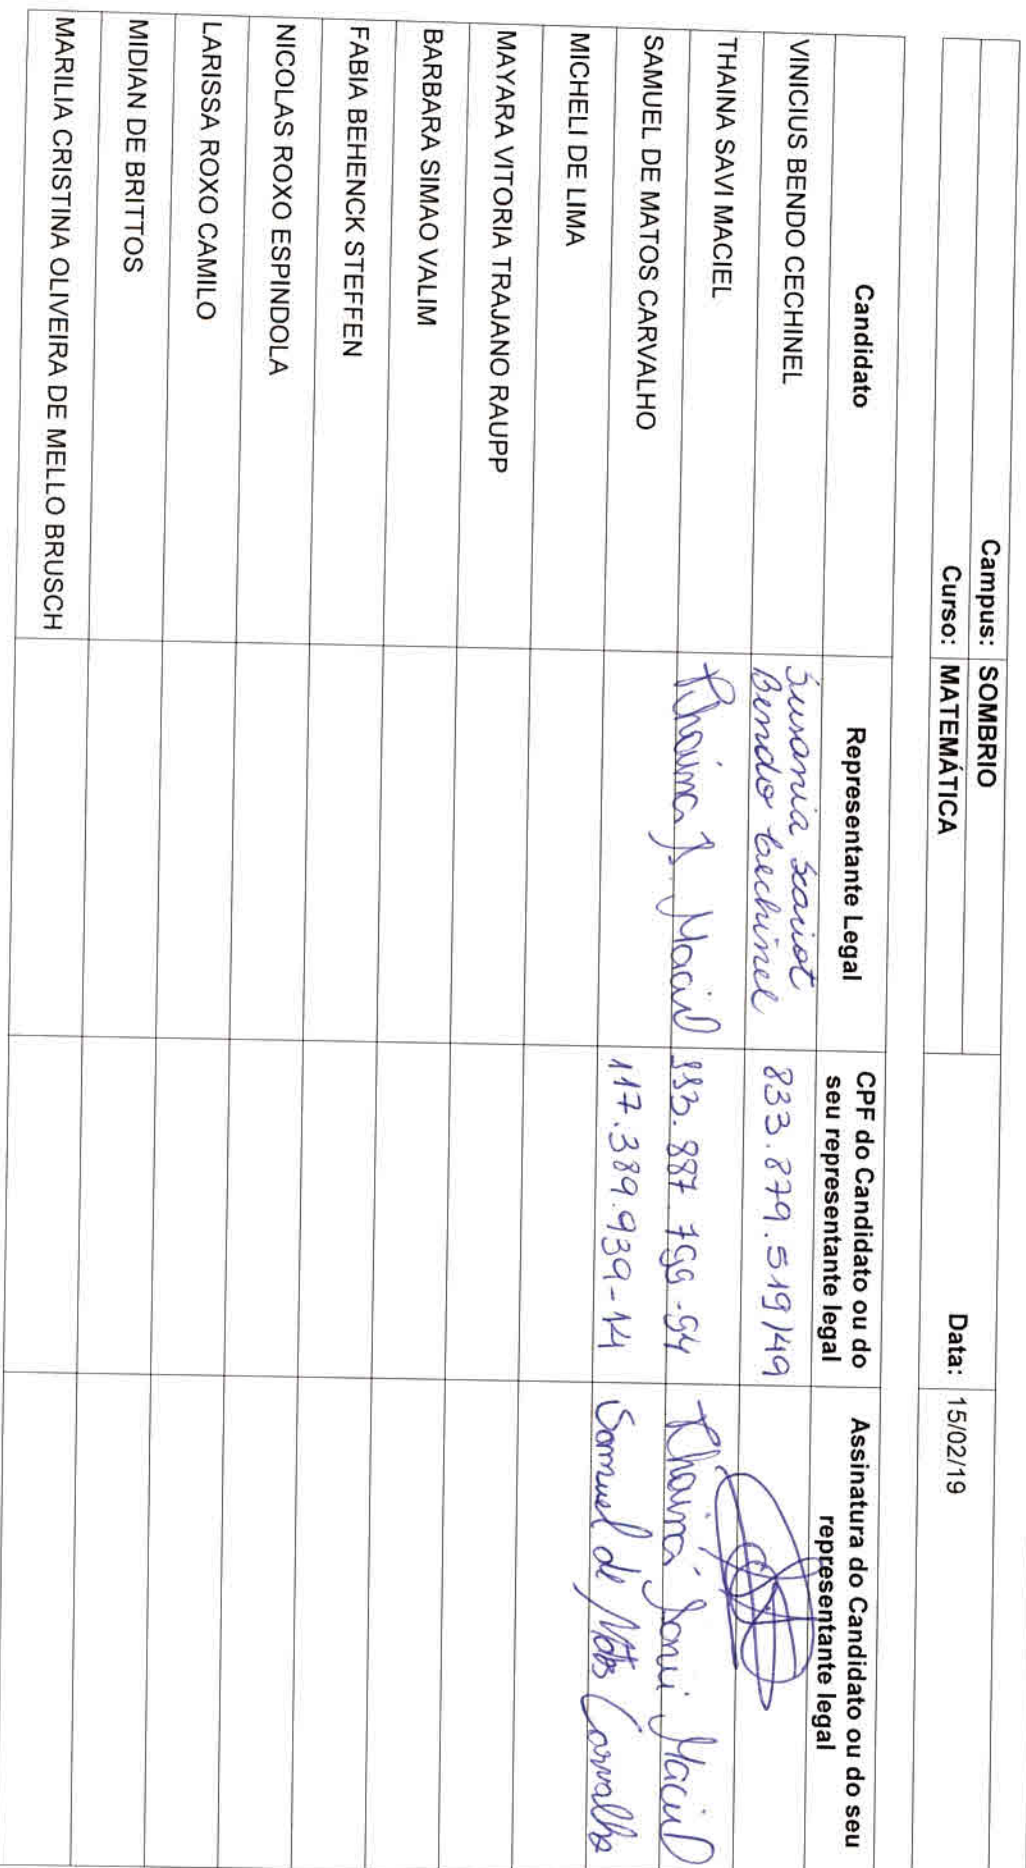 Campus: SOMBRIO
Curso: MATEMÁTICA
Data: 15/02/19
Candidato
Representante Legal
CPF do Candidato ou do
seu representante legal
Assinatura do Candidato ou do seu
representante legal
VINICIUS BENDO CECHINEL
Susania Scariot
Bendo Cechinel
833.879.519/49
THAINA SAVI MACIEL
Thaina S. Maciel
Thainá Savi Maciel
SAMUEL DE MATOS CARVALHO
117.389.939-14
Samuel de Matos Carvalho
MICHELI DE LIMA
MAYARA VITORIA TRAJANO RAUPP
BARBARA SIMAO VALIM
FABIA BEHENCK STEFFEN
NICOLAS ROXO ESPINDOLA
LARISSA ROXO CAMILO
MIDIAN DE BRITTOS
MARILIA CRISTINA OLIVEIRA DE MELLO BRUSCH